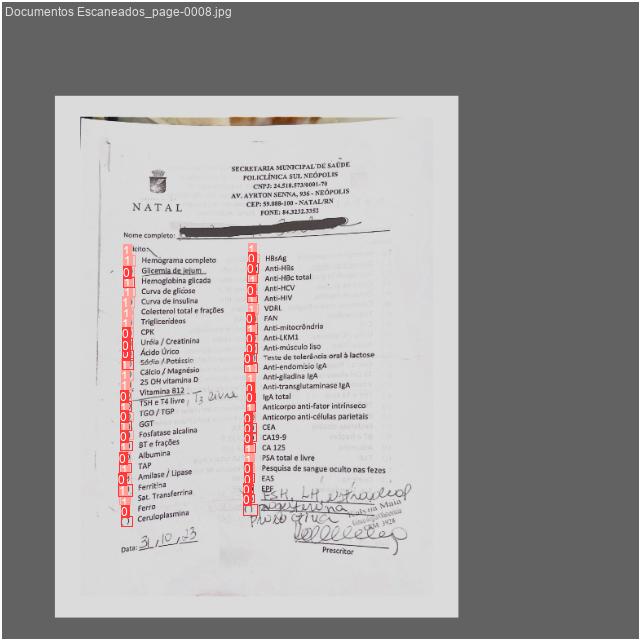 Documentos Escaneados_page-0008.jpg
NATAL
SECRETARIA MUNICIPAL DE SAÚDE
POLICLÍNICA SUL NEÓPOLIS
CNPJ: 24.518.573/0001-70
AV. AYRTON SENNA, 936 - NEÓPOLIS
CEP: 59.088-100 - NATAL/RN
FONE: 84.3232.3352
Nome completo:
Hemograma completo
Glicemia de jejum
Hemoglobina glicada
Curva de glicose
Curva de insulina
Colesterol total e frações
Triglicerídeos
CPK
Uréia / Creatinina
Ácido Úrico
Sódio / Potássio
Cálcio / Magnésio
25 OH vitamina D
Vitamina B12
TSH e T4 livre, T3 livre
TGO / TGP
GGT
Fosfatase alcalina
BT e frações
Albumina
TAP
Amilase / Lipase
Ferritina
Sat. Transferrina
Ferro
Ceruloplasmina
HBsAg
Anti-HBs
Anti-HBc total
Anti-HCV
Anti-HIV
VDRL
FAN
Anti-mitocôndria
Anti-LKM1
Anti-músculo liso
Teste de tolerância oral à lactose
Anti-endomísio IgA
Anti-gliadina IgA
Anti-transglutaminase IgA
IgA total
Anticorpo anti-fator intrínseco
Anticorpo anti-células parietais
CEA
CA19-9
CA 125
PSA total e livre
Pesquisa de sangue oculto nas fezes
EAS
EPF
FSH, LH, estradiol
Data: 31, 10, 23
Prescritor